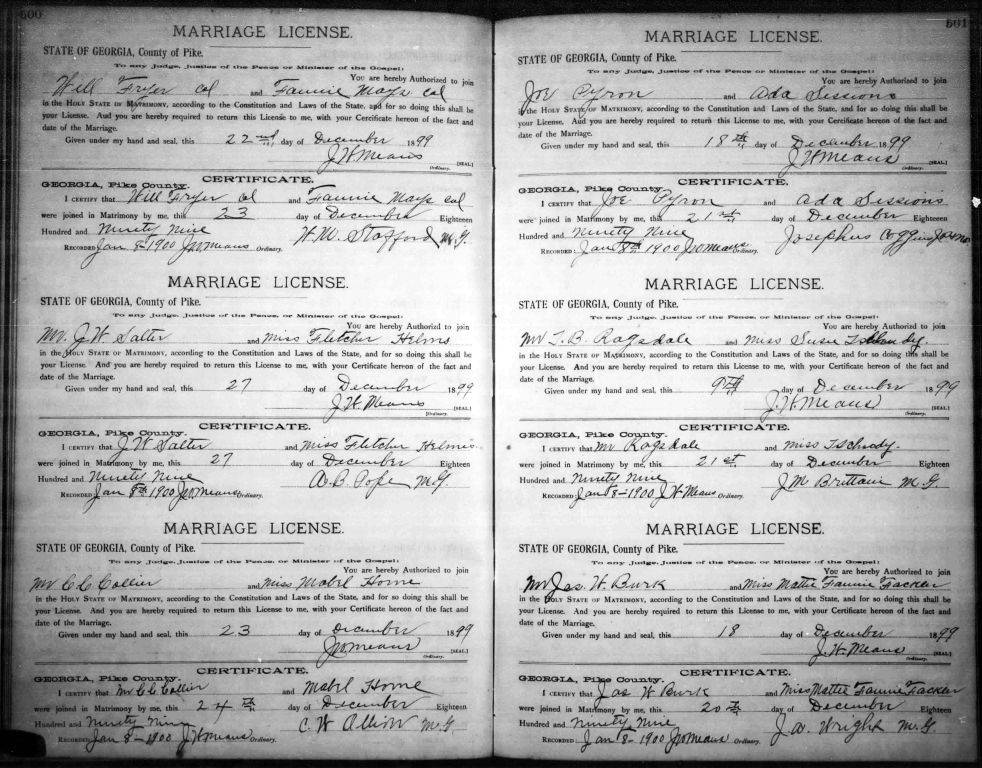 600
MARRIAGE LICENSE.
STATE OF GEORGIA, County of Pike.
To any Judge, Justice of the Peace or Minister of the Gospel:
You are hereby Authorized to join
Will Fryer col and Fannie Mays col
in the HOLY STATE OF MATRIMONY, according to the Constitution and Laws of the State, and for so doing this shall be
your License. And you are hereby required to return this License to me, with your Certificate hereon of the fact and
date of the Marriage.
Given under my hand and seal, this 22nd day of December 1899
J H Means [SEAL]
Ordinary.
CERTIFICATE.
GEORGIA, Pike County.
I CERTIFY that Will Fryer col and Fannie Mays col
were joined in Matrimony by me, this 23 day of December Eighteen
Hundred and Ninety Nine W. M. Stafford M.G.
RECORDED Jan 8-1900 Means Ordinary.
MARRIAGE LICENSE.
STATE OF GEORGIA, County of Pike.
To any Judge, Justice of the Peace or Minister of the Gospel:
You are hereby Authorized to join
Mr. J W Salter and Miss Fletcher Helms
in the HOLY STATE OF MATRIMONY, according to the Constitution and Laws of the State, and for so doing this shall be
your License. And you are hereby required to return this License to me, with your Certificate hereon of the fact and
date of the Marriage.
Given under my hand and seal, this 27 day of December 1899
J. H. Means [SEAL]
Ordinary.
CERTIFICATE.
GEORGIA, Pike County.
I CERTIFY that J W Salter and Miss Fletcher Helms
were joined in Matrimony by me, this 27 day of December Eighteen
Hundred and Ninety Nine A. B. Pope M.G.
RECORDED Jan 8th 1900 Means Ordinary.
MARRIAGE LICENSE.
STATE OF GEORGIA, County of Pike.
To any Judge, Justice of the Peace or Minister of the Gospel:
You are hereby Authorized to join
Mr C. C. Collier and Miss Mabel Horne
in the HOLY STATE OF MATRIMONY, according to the Constitution and Laws of the State, and for so doing this shall be
your License. And you are hereby required to return this License to me, with your Certificate hereon of the fact and
date of the Marriage.
Given under my hand and seal, this 23 day of December 1899
Means [SEAL]
Ordinary.
CERTIFICATE.
GEORGIA, Pike County.
I CERTIFY that Mr C C Collier and Mabel Horne
were joined in Matrimony by me, this 24th day of December Eighteen
Hundred and Ninety Nine C. W. M.G.
RECORDED: Jan 8-1900 J H Means Ordinary.
601
MARRIAGE LICENSE.
STATE OF GEORGIA, County of Pike.
To any Judge, Justice of the Peace or Minister of the Gospel:
You are hereby Authorized to join
Joe Pyron and Ada Sessions
in the HOLY STATE OF MATRIMONY, according to the Constitution and Laws of the State, and for so doing this shall be
your License. And you are hereby required to return this License to me, with your Certificate hereon of the fact and
date of the Marriage.
Given under my hand and seal, this 18th day of December 1899
J H Means [SEAL]
Ordinary.
CERTIFICATE.
GEORGIA, Pike County.
I CERTIFY that Joe Pyron and Ada Sessions
were joined in Matrimony by me, this 21st day of December Eighteen
Hundred and Ninety Nine Josephus Coggins
RECORDED: Jan 8th 1900 Means Ordinary.
MARRIAGE LICENSE.
STATE OF GEORGIA, County of Pike.
To any Judge, Justice of the Peace or Minister of the Gospel:
You are hereby Authorized to join
Mr T. B. Ragsdale and Miss Susie
in the HOLY STATE OF MATRIMONY, according to the Constitution and Laws of the State, and for so doing this shall be
your License. And you are hereby required to return this License to me, with your Certificate hereon of the fact and
date of the Marriage.
Given under my hand and seal, this 9th day of December 1899
J. H. Means [SEAL]
Ordinary.
CERTIFICATE.
GEORGIA, Pike County.
I CERTIFY that Mr Ragsdale and Miss Tschudy
were joined in Matrimony by me, this 21st. day of December Eighteen
Hundred and Ninety Nine J M Brittain M.G.
RECORDED: Jan 8-1900 J H Means Ordinary.
MARRIAGE LICENSE.
STATE OF GEORGIA, County of Pike.
To any Judge, Justice of the Peace or Minister of the Gospel:
You are hereby Authorized to join
Mr Jas. W. Burk and Miss Mattie Fannie Tacker
in the HOLY STATE OF MATRIMONY, according to the Constitution and Laws of the State, and for so doing this shall be
your License. And you are hereby required to return this License to me, with your Certificate hereon of the fact and
date of the Marriage.
Given under my hand and seal, this 18 day of December 1899
J. H. Means [SEAL]
Ordinary.
CERTIFICATE.
GEORGIA, Pike County.
I CERTIFY that Jas W Burk and Miss Mattie Fannie Tacker
were joined in Matrimony by me, this 20th day of December Eighteen
Hundred and Ninety Nine J. A. Wright M.G.
RECORDED: Jan 8-1900 Means Ordinary.